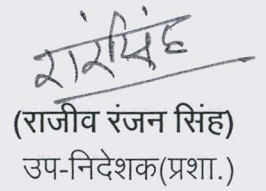 रारंसिंह
(राजीव रंजन सिंह)
उप-निदेशक(प्रशा.)